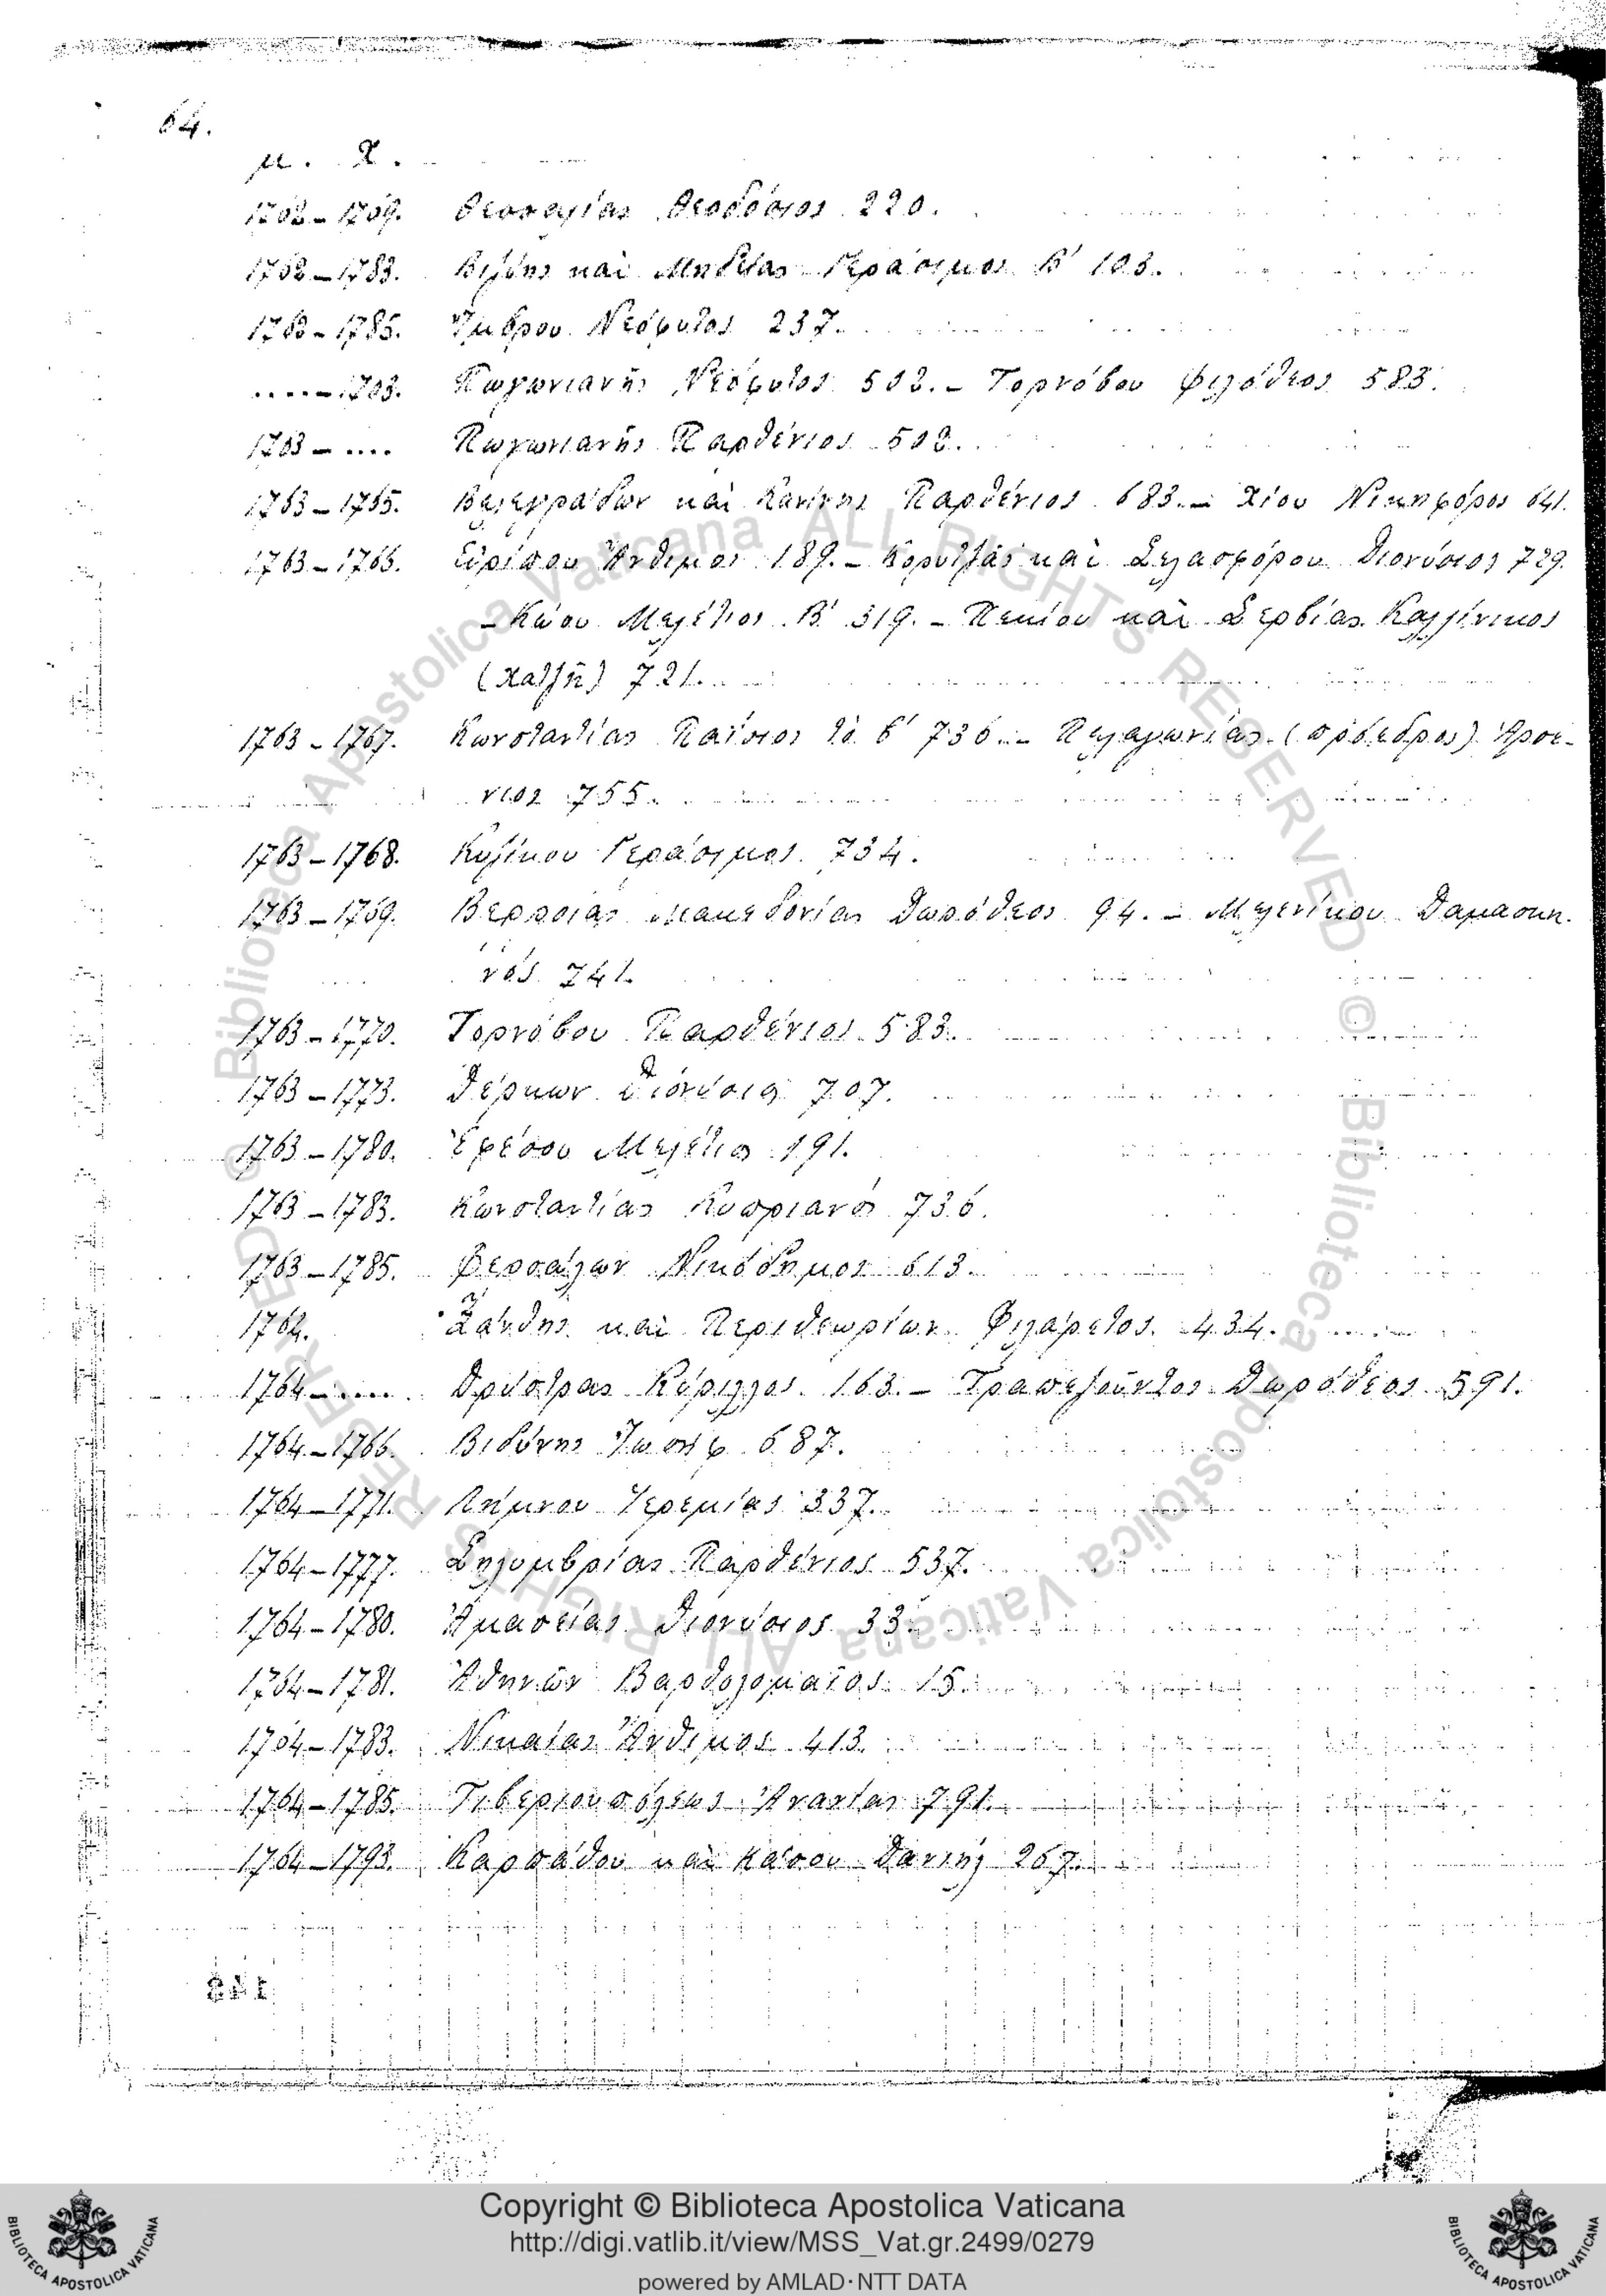 64.
μ. Χ.
1762 – 1769. Θεσσαλίας Θεοδόσιος 220.
1762 – 1783. Βιζύης καὶ Μηδείας Γεράσιμος Β' 103.
1762 – 1785. Ἴμβρου Νεόφυτος 237.
.... – 1763. Πωγωνιανῆς Νεόφυτος 502. – Τορνόβου Φιλόθεος 583.
1763 – .... Πωγωνιανῆς Παρθένιος 502.
1763 – 1765. Βελεγράδων καὶ Κανίνης Παρθένιος 683. – Χίου Νικηφόρος 641.
1763 – 1766. Εὐρίπου Ἄνθιμος 189. – Κορυτζᾶς καὶ Σελασφόρου Διονύσιος 729.
– Κώου Μελέτιος Β' 319. – Πεκίου καὶ Σερβίας Καλλίνικος
(Χατζῆ) 721.
1763 – 1767. Κωνσταντίας Παΐσιος τὸ β' 736. – Πελαγωνίας (πρόεδρος) Ἀρσέ-
νιος 755.
1763 – 1768. Κυζίκου Γεράσιμος 734.
1763 – 1769. Βερροίας Μακεδονίας Δωρόθεος 94. – Μελενίκου Δαμασκη-
νός 741.
1763 – 1770. Τορνόβου Παρθένιος 583.
1763 – 1773. Δέρκων Διονύσιος 707.
1763 – 1780. Ἐφέσου Μελέτιος 191.
1763 – 1783. Κωνσταντίας Κυπριανός 736.
1763 – 1785. Φερσάλων Νικόδημος 613.
1764. Ξάνθης καὶ Περιθεωρίων Φιλάρετος 434.
1764 – .... Δρύστρας Κύριλλος 163. – Τραπεζοῦντος Δωρόθεος 591.
1764 – 1766. Βιδύνης Ἰωσήφ 687.
1764 – 1771. Λήμνου Ἱερεμίας 337.
1764 – 1777. Σηλυμβρίας Παρθένιος 537.
1764 – 1780. Ἀμασείας Διονύσιος 33.
1764 – 1781. Ἀθηνῶν Βαρθολομαῖος 15.
1764 – 1783. Νικαίας Ἄνθιμος 413.
1764 – 1785. Τιβεριουπόλεως Ἀνανίας 791.
1764 – 1793. Καρπάθου καὶ Κάσου Δανιήλ 267.
© Biblioteca Apostolica Vaticana ALL RIGHTS RESERVED
© Biblioteca Apostolica Vaticana ALL RIGHTS RESERVED
Copyright © Biblioteca Apostolica Vaticana
http://digi.vatlib.it/view/MSS_Vat.gr.2499/0279
powered by AMLAD·NTT DATA
BIBLIOTECA APOSTOLICA VATICANA
BIBLIOTECA APOSTOLICA VATICANA